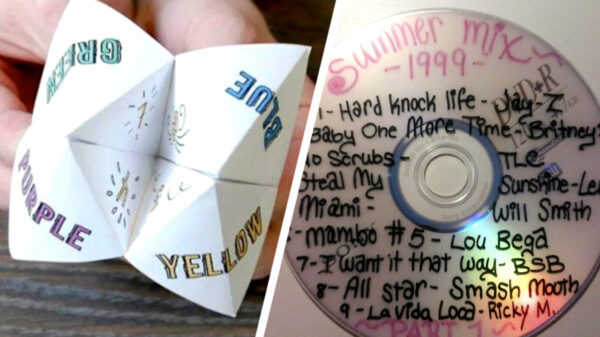 GREEN
BLUE
PURPLE
YELLOW
Summer mix
-1999-
1- Hard knock life - Jay Z
Baby One More Time - Britney
No Scrubs - TLC
Steal My Sunshine - Le
Miami - Will Smith
- mambo #5 - Lou Bega
7- I want it that way - BSB
8- All star - Smash Mouth
9 - La vida Loca - Ricky M.
~PART 1~